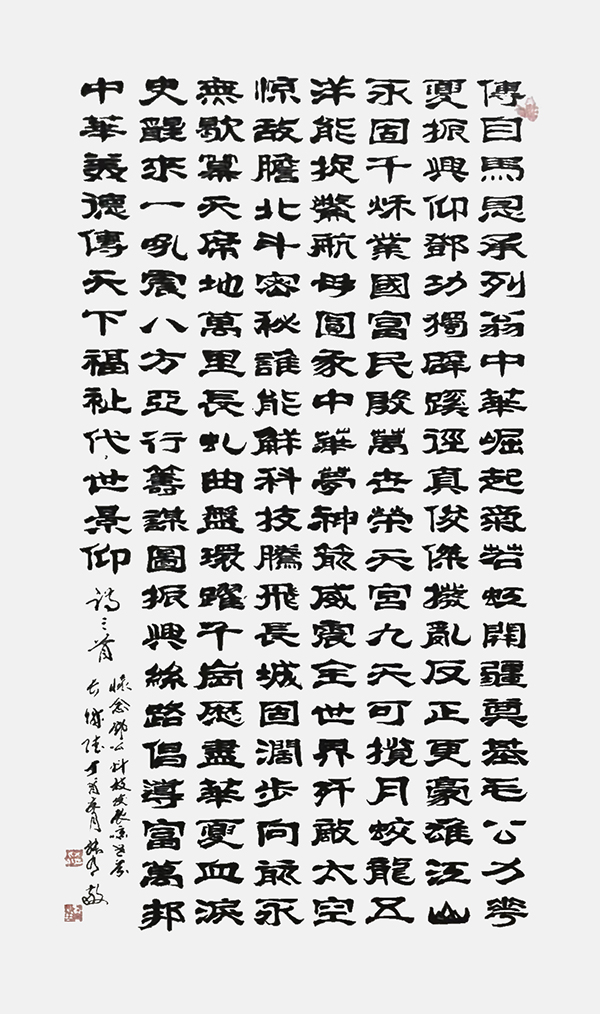 傳自馬恩承列翁中華崛起氣若虹開疆奠基毛公力華
夏振興仰鄧功獨辟蹊徑真俊傑撥亂反正更豪雄江山
永固千秋業國富民殷萬世榮天宮九天可攬月蛟龍五
洋能捉鱉航母圓家中華夢神箭威震全世界歼敵太空
惊敌膽北斗密秘誰能解科技騰飛長城固闊步向前永
無歇幕天席地萬里長虬曲盤環躍千崗歷盡華夏血淚
史醒來一吼震八方亞行籌謀圖振興絲路倡導富萬邦
中華美德傳天下福祉代々世景仰詩三首
懷念鄧公科技发展
丁酉